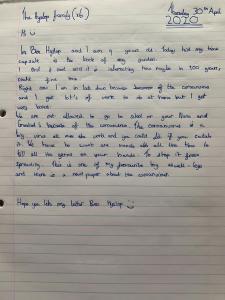 The Hyslop family (x6)
Thursday 30th April
2020
Hi
Im Ben Hyslop and I am 9 years old. Today hid my time
capsule is the back of my garden.
I and it and it is interesting how maybe in 200 years,
could find
Right now I am in lock down because because of the coronavirus
and I get lot's of work to do at home but I get
very bored.
We are not allowed to go to school or your Nana and
Grandad's because of the coronavirus. The coronavirus is a
big virus all over the world and you could die if you catch
it. We have to wash are hands all the time to
kill all the germs on your hands. To stop it from
spreading. This is one of my favourite toy
and there is a news paper about the coronavirus.
Hope you like my letter Ben Hyslop